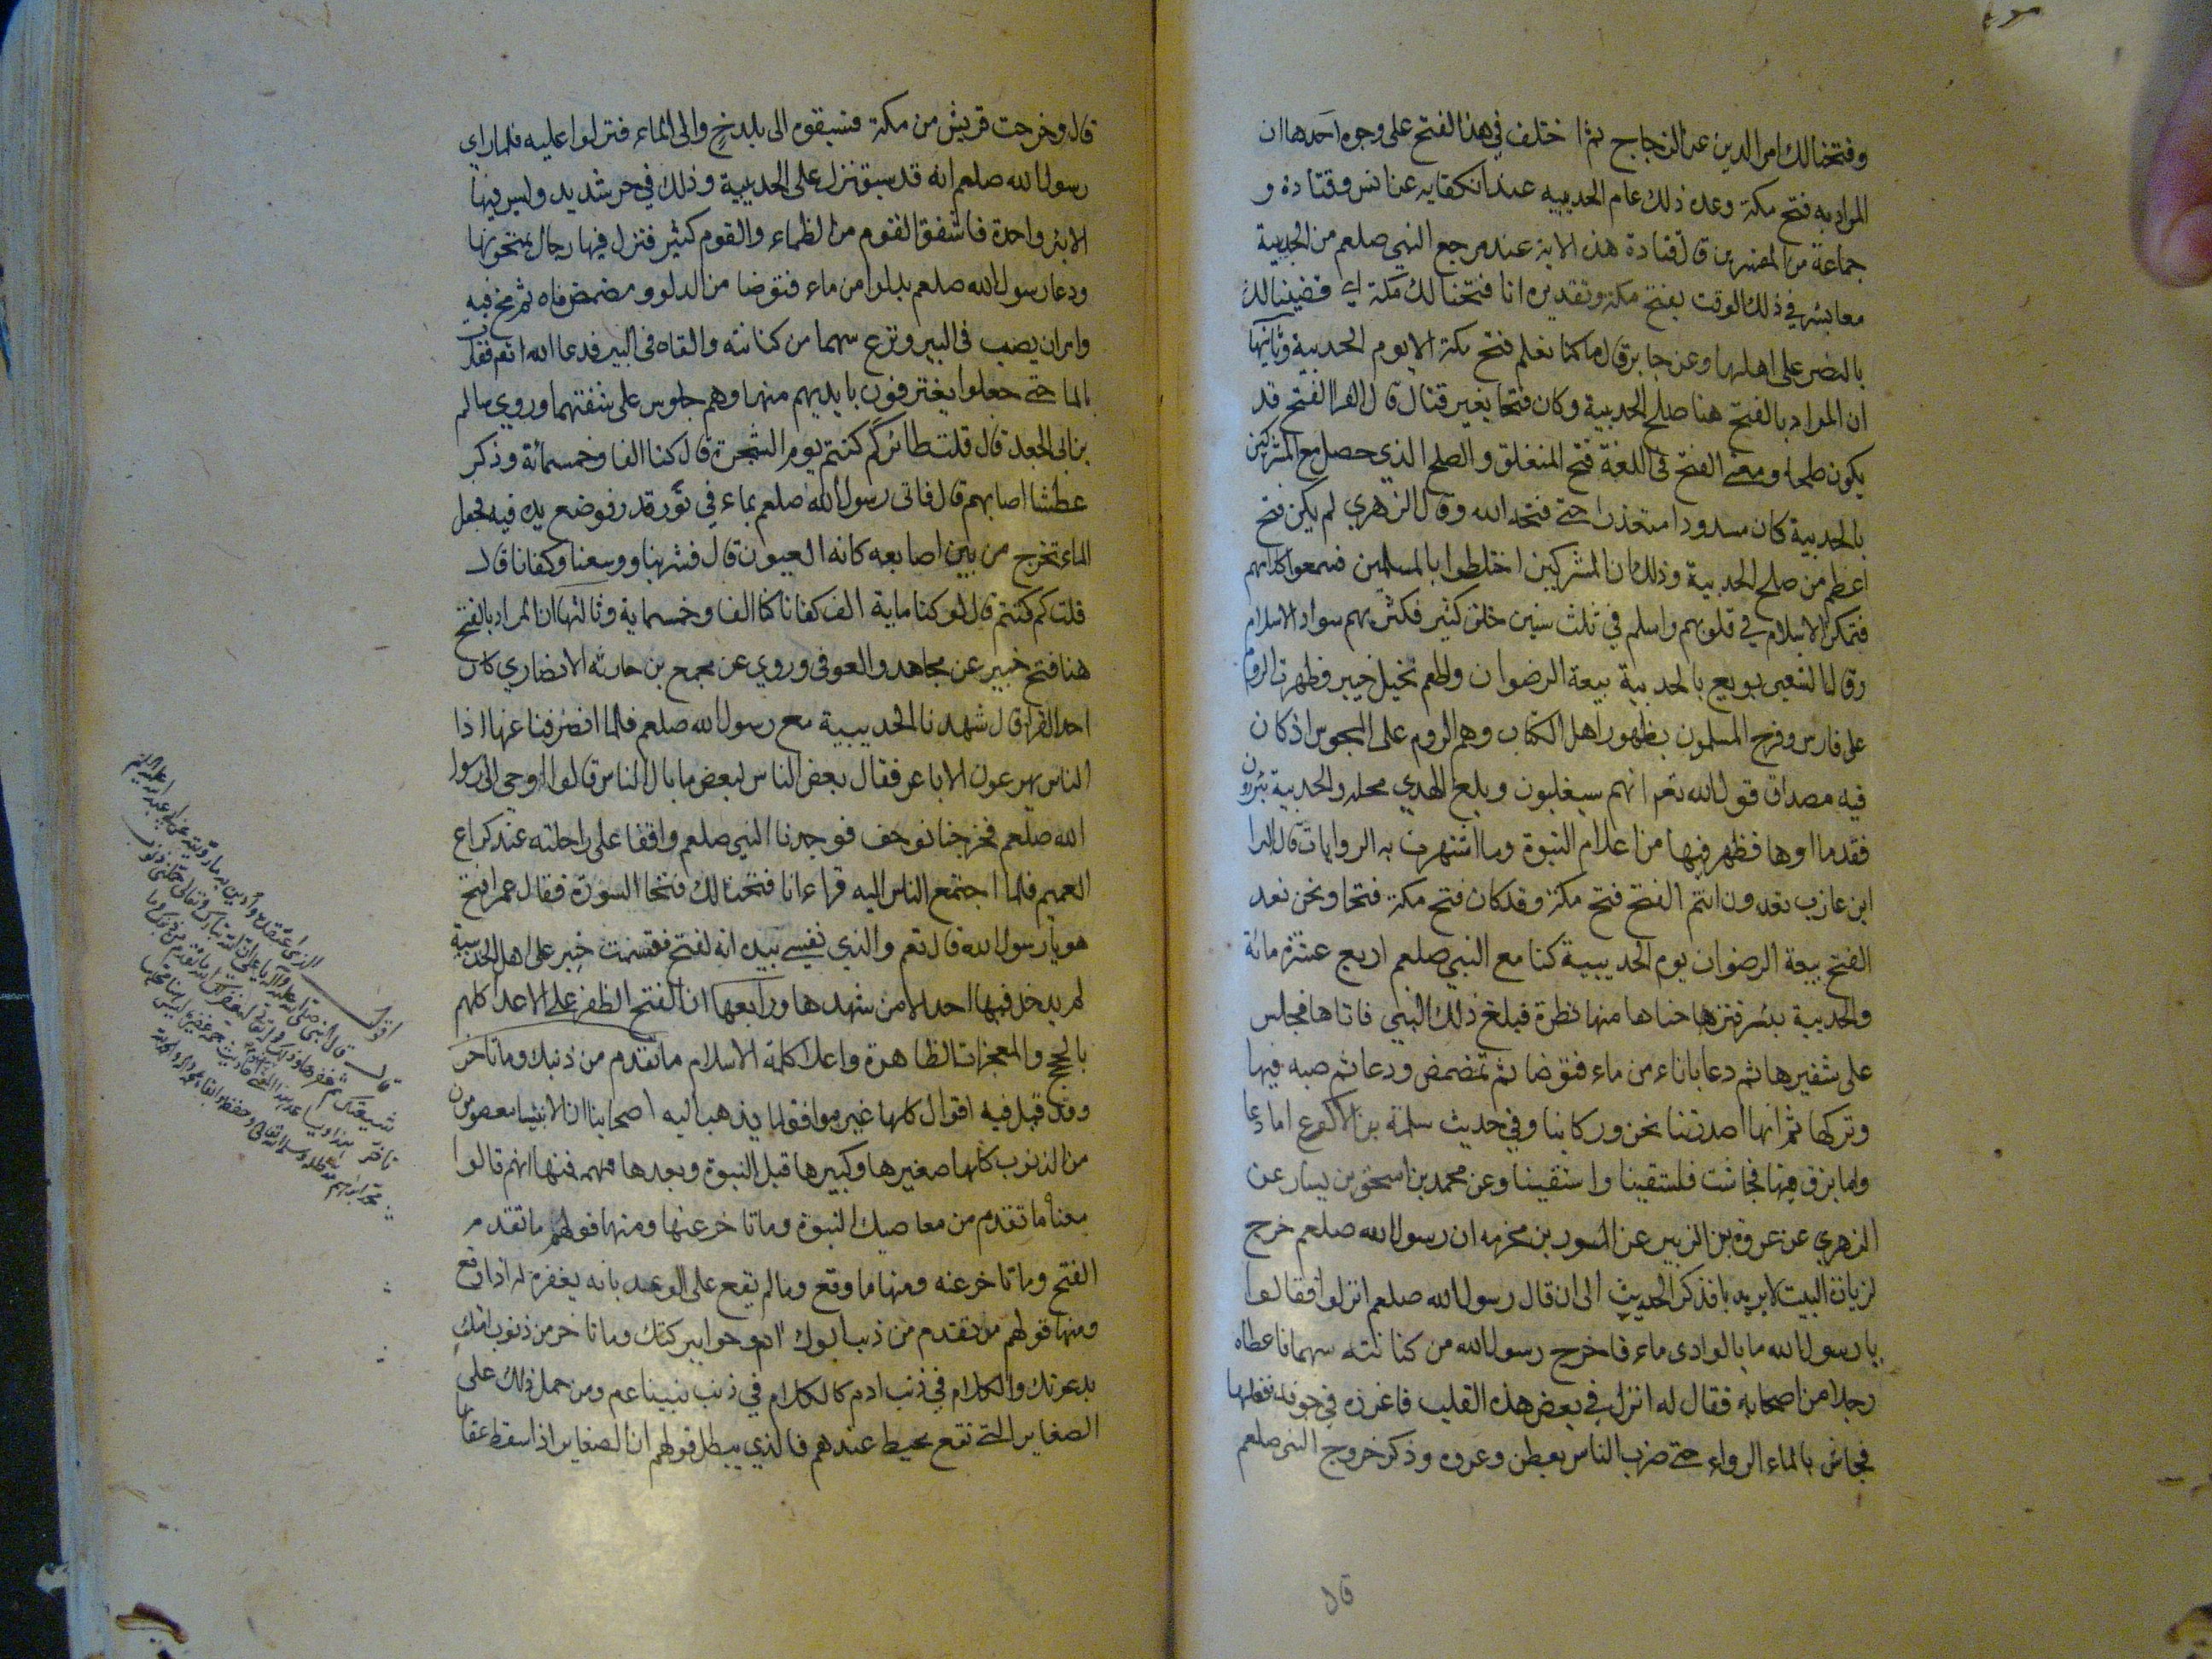 وفتحنا لك امر الدين عن الزجاج ثم اختلف في هذا الفتح على وجوه احدها ان
المراد به فتح مكة وعده ذلك عام الحديبيه عند انكفايه عن انس وقتادة و
جماعة من المفسرين قال قتادة هذه الاية عند مرجع النبي صلعم من الحديبية
بشر في ذلك الوقت بفتح مكة وتقديره انا فتحنا لك مكة اي قضينا لك
بالنصر على اهلها وعن جابر قال ما كنا نعلم فتح مكة الا يوم الحديبية وثانيها
ان المراد بالفتح هنا صلح الحديبية وكان فتحا بغير قتال قال الفرا الفتح قد
يكون صلحا ومعنى الفتح في اللغة فتح المنغلق والصلح الذي حصل مع المشركين
بالحديبية كان مسدودا متعذرا حتى فتحه الله وقال الزهري لم يكن فتح
اعظم من صلح الحديبية وذلك ان المشركين اختلطوا بالمسلمين فسمعوا كلامهم
فتمكن الاسلام في قلوبهم واسلم في ثلث سنين خلق كثير فكثر بهم سواد الاسلام
وقال الشعبي بويع بالحديبية بيعة الرضوان واطعم نخيل خيبر وظهرت الروم
على فارس وفرح المسلمون بظهور اهل الكتاب وهم الروم على المجوس اذ كان
فيه مصداق قول الله تعم انهم سيغلبون وبلغ الهدي محله والحديبية بئر
فقد ماؤها فظهر فيها من اعلام النبوة وما اشتهرت به الروايات قال البرا
ابن عازب تعدون انتم الفتح فتح مكة وقد كان فتح مكة فتحا ونحن نعد
الفتح بيعة الرضوان يوم الحديبية كنا مع النبي صلعم اربع عشرة مائة
والحديبية بئر فنزحناها منها قطرة فبلغ ذلك النبي فاتاها فجلس
على شفيرها ثم دعا باناء من ماء فتوضا ثم تمضمض ودعا ثم صبه فيها
وتركها ثم انها اصدرتنا نحن وركابنا وفي حديث سلمة بن الاكوع اما دعا
واما بزق فيها فجاشت فسقينا واستقينا وعن محمد بن اسحق بن يسار عن
الزهري عن عروة بن الزبير عن المسور بن مخرمه ان رسول الله صلعم خرج
لزيارة البيت لا يريد با فذكر الحديث الى ان قال رسول الله صلعم انزلوا فقالوا
يا رسول الله ما بالوادى ماء فاخرج رسول الله من كنانته سهما فاعطاه
رجلا من اصحابه فقال له انزل في بعض هذه القليب فاغرزه في جوفه ففعلها
فجاش بالماء الرواء حتى ضرب الناس بعطن وعروه وذكر خروج النبي صلعم
قال
قال وخرجت قريش من مكة فسبقوه الى بلدح والى الماء فنزلوا عليه فلما راى
رسول الله صلعم انه قد سبق نزل على الحديبية وذلك في حر شديد وليس فيها
الا بئر واحدة فاشفق القوم من الظماء والقوم كثير فنزل فيها رجال يمتحونها
ودعا رسول الله صلعم بدلو من ماء فتوضا من الدلو ومضمض فاه ثم مج فيه
وامر ان يصب في البير ونزع سهما من كنانته والقاه في البير فدعا الله تعم ففارت
بالما حتى جعلوا يغترفون بايديهم منها وهم جلوس على شفتها وروي سالم
بن ابي الجعد قال قلت لجابر كم كنتم يوم الشجرة قال كنا الفا وخمسمائة وذكر
عطشا اصابهم قال فاتى رسول الله صلعم بماء في تور فوضع يده فيه فجعل
الماء تخرج من بين اصابعه كانه العيون قال فشربنا ووسعنا وكفانا قال
قلت كم كنتم قال لو كنا ماية الف كفانا كنا الف وخمسماية وثالثها ان المراد بالفتح
هنا فتح خيبر عن مجاهد والعوفى وروي عن مجمع بن حارثه الانصاري كان
احد القرا قال شهدنا الحديبية مع رسول الله صلعم فلما انصرفنا عنها اذا
الناس يهرعون الاباعر فقال بعض الناس لبعض ما بال الناس قالوا اوحي الى رسول
الله صلعم فخرجنا نوجف فوجدنا النبي صلعم واقفا على راحلته عند كراع
الغميم فلما اجتمع الناس اليه قراء انا فتحنا لك فتحا السورة فقال عمر افتح
هو يا رسول الله قال نعم والذي نفسي بيده انه لفتح فقسمت خيبر على اهل الحديبية
لم يدخل فيها احد الا من شهدها ورابعها ان الفتح الظفر على الاعدا كلهم
بالحجج والمعجزات الظاهرة واعلا كلمة الاسلام ما تقدم من ذنبك وما تاخر
وقد قيل فيه اقوال كلها غير موافق لما يذهب اليه اصحابنا ان الانبيا معصومون
من الذنوب كلها صغيرها وكبيرها قبل النبوة وبعدها فمنها انهم قالوا
معناه ما تقدم من معاصيك النبوة وما تاخر عنها ومنها قولهم ما تقدم
الفتح وما تاخر عنه ومنها ما وقع وما لم يقع على الوعد بانه يغفره له اذا وقع
ومنها قولهم ما تقدم من ذنب ابويك ادم وحوا ببركتك وما تاخر من ذنوب امتك
بدعوتك والكلام في ذنب ادم كالكلام في ذنب نبينا عم ومن حمل ذلك على
الصغاير التي تقع محبط عندهم فالذي يبطل قولهم ان الصغاير اذا سقط عقا